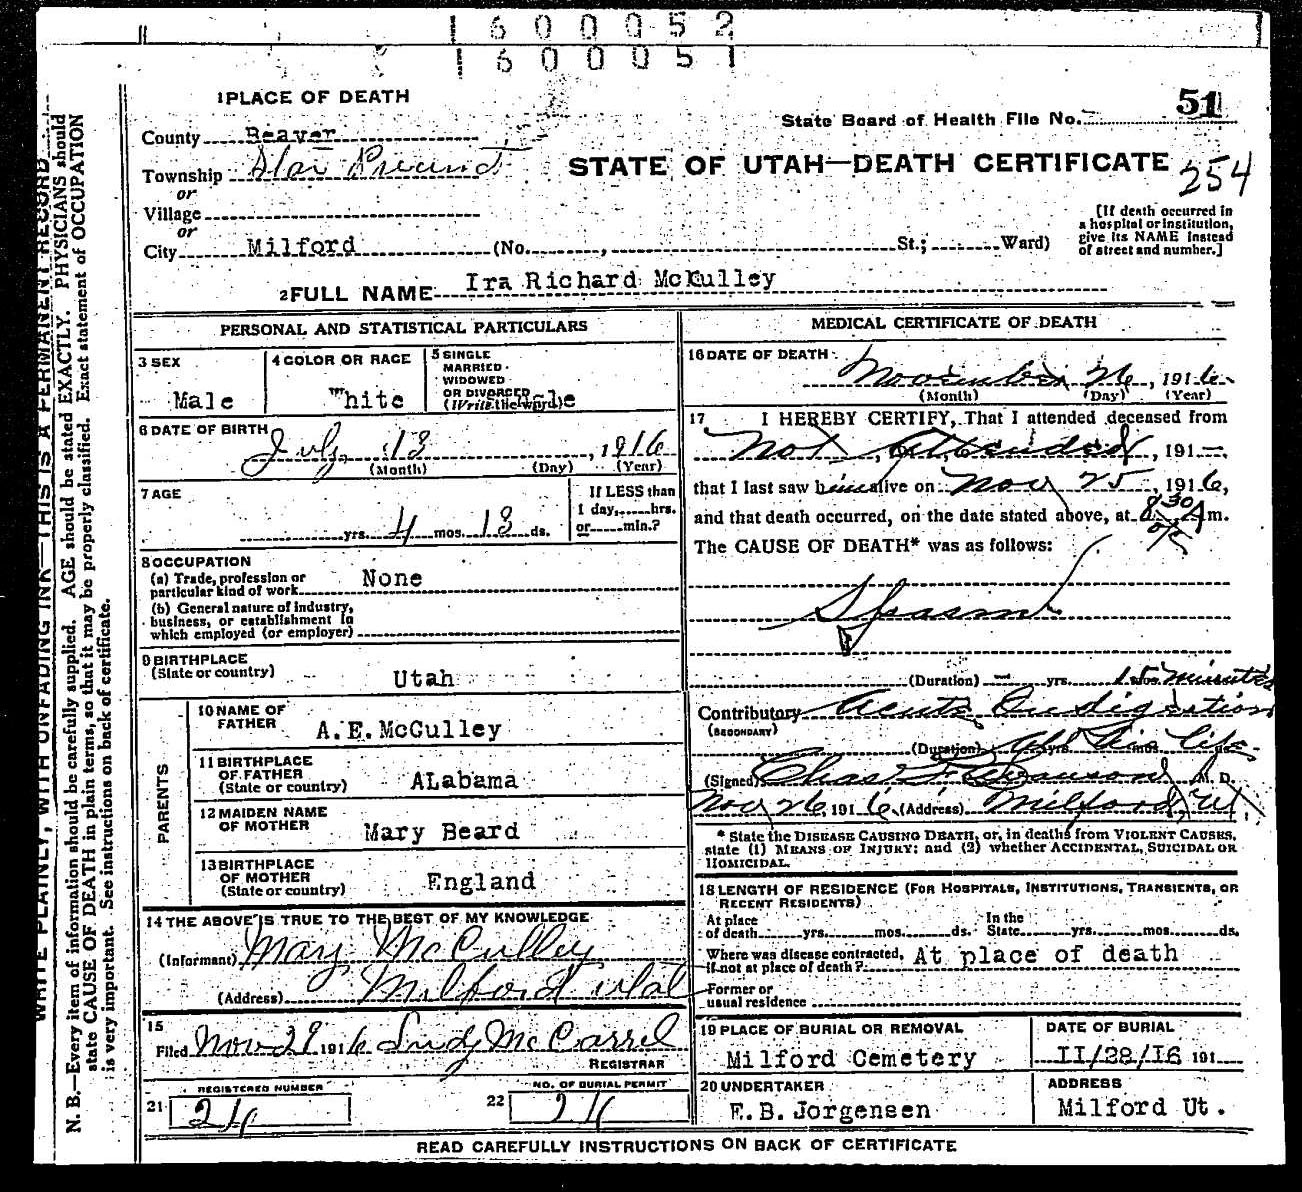 1600052
1600051
1 PLACE OF DEATH
51
State Board of Health File No.
County Beaver
Township Star Precinct
STATE OF UTAH—DEATH CERTIFICATE
254
or
Village
or
City Milford (No. , St.; Ward)
[If death occurred in
a hospital or institution,
give its NAME instead
of street and number.]
2 FULL NAME Ira Richard McCulley
PERSONAL AND STATISTICAL PARTICULARS
3 SEX
Male
4 COLOR OR RACE
White
5 SINGLE
MARRIED
WIDOWED
OR DIVORCED
(Write the word)
6 DATE OF BIRTH July 13, 1916
(Month) (Day) (Year)
7 AGE
yrs. 4 mos. 13 ds.
If LESS than
1 day, hrs.
or min.?
8 OCCUPATION
(a) Trade, profession or
particular kind of work None
(b) General nature of industry,
business, or establishment in
which employed (or employer)
9 BIRTHPLACE
(State or country) Utah
PARENTS
10 NAME OF
FATHER A.E.McCulley
11 BIRTHPLACE
OF FATHER
(State or country) ALabama
12 MAIDEN NAME
OF MOTHER Mary Beard
13 BIRTHPLACE
OF MOTHER
(State or country) England
14 THE ABOVE IS TRUE TO THE BEST OF MY KNOWLEDGE
(Informant) Mary McCulley
(Address) Milford Utah
15
Filed Nov 29 1916 McCarrel
REGISTRAR
REGISTERED NUMBER
21
NO. OF BURIAL PERMIT
22
MEDICAL CERTIFICATE OF DEATH
16 DATE OF DEATH
November 26, 1916
(Month) (Day) (Year)
17 I HEREBY CERTIFY, That I attended deceased from
Not Attended, 191—,
that I last saw him alive on Nov 25, 1916,
and that death occurred, on the date stated above, at 830 A m.
The CAUSE OF DEATH* was as follows:
Spasm
(Duration) — yrs. 15 mos. minutes
Contributory Acute Indigestion
(SECONDARY)
(Duration) All yrs. his mos. life ds.
(Signed) Chas M. D.
Nov 26, 1916 (Address) Milford, Ut
* State the DISEASE CAUSING DEATH, or, in deaths from VIOLENT CAUSES,
state (1) MEANS OF INJURY; and (2) whether ACCIDENTAL, SUICIDAL OR
HOMICIDAL.
18 LENGTH OF RESIDENCE (FOR HOSPITALS, INSTITUTIONS, TRANSIENTS, OR
RECENT RESIDENTS)
At place
of death yrs. mos. ds.
In the
State yrs. mos. ds.
Where was disease contracted,
if not at place of death? At place of death
Former or
usual residence
19 PLACE OF BURIAL OR REMOVAL
Milford Cemetery
DATE OF BURIAL
11/28/16 191
20 UNDERTAKER
E.B.Jorgensen
ADDRESS
Milford Ut.
READ CAREFULLY INSTRUCTIONS ON BACK OF CERTIFICATE
WRITE PLAINLY, WITH UNFADING INK—THIS IS A PERMANENT RECORD
N. B.—Every item of information should be carefully supplied. AGE should be stated EXACTLY. PHYSICIANS should
state CAUSE OF DEATH in plain terms, so that it may be properly classified. Exact statement of OCCUPATION
is very important. See instructions on back of certificate.